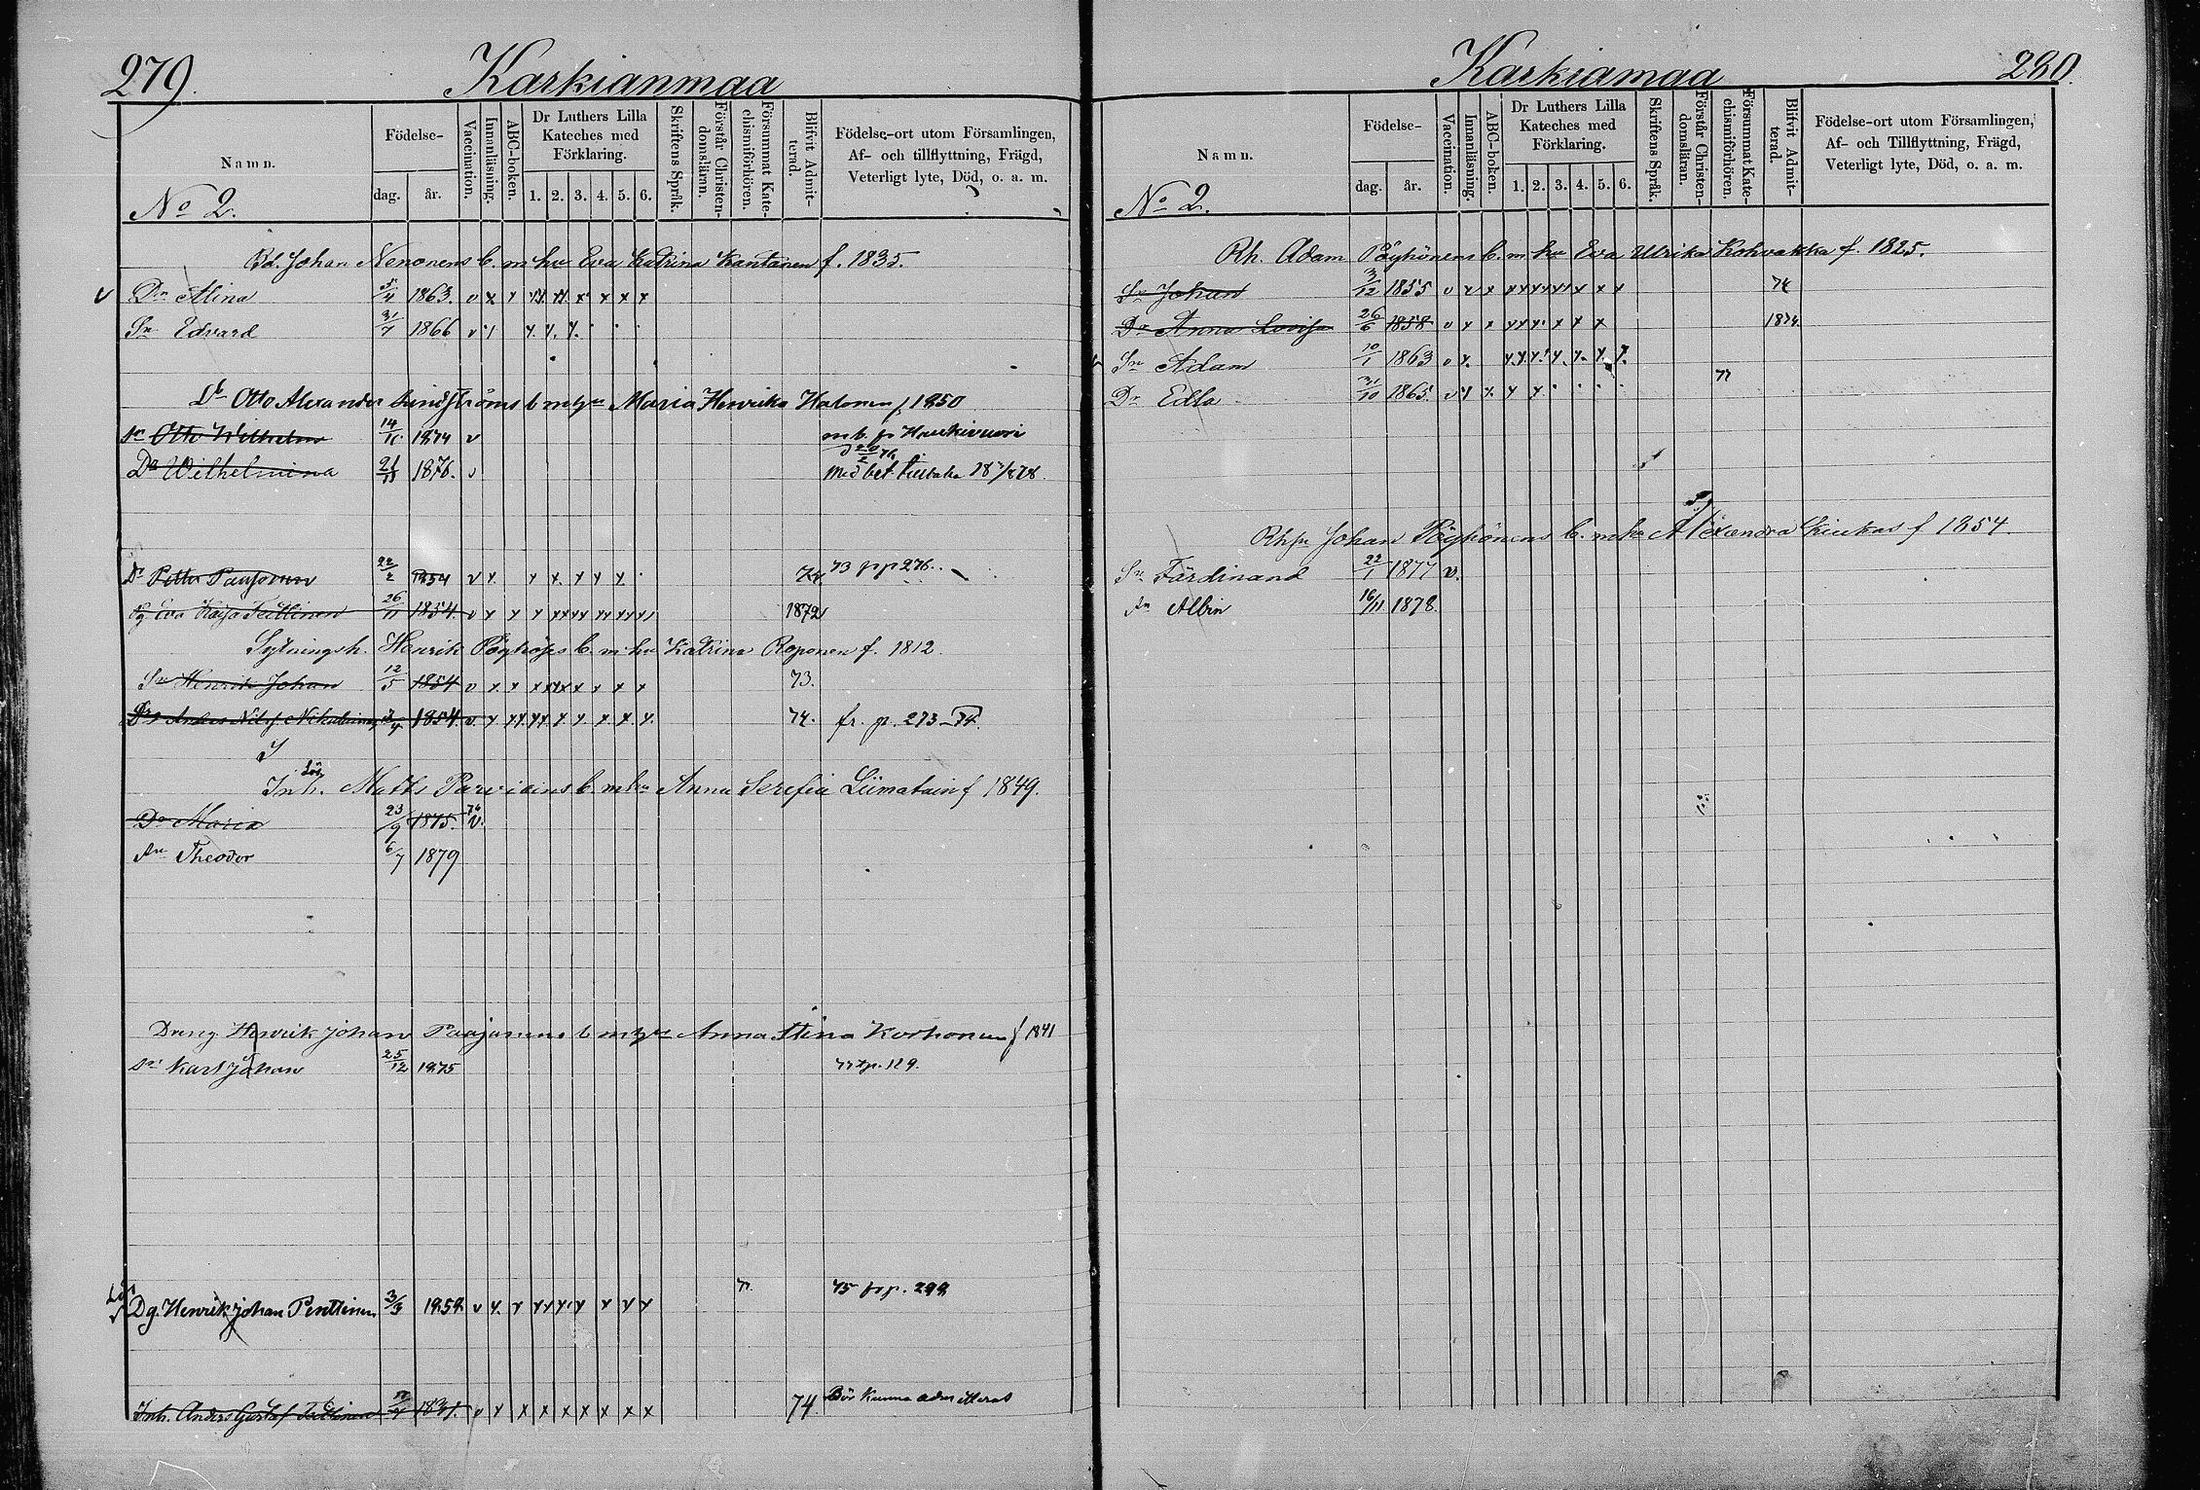 279.
Karkianmaa
Namn.
Födelse-
dag.
år.
Vaccination.
Innanläsning.
ABC-boken.
Dr Luthers Lilla
Kateches med
Förklaring.
1. 2. 3. 4. 5. 6.
Skriftens Språk.
Förstår Christen-
domsläran.
Försummat Kate-
chismiförhören.
Blifvit Admit-
terad.
Födelse-ort utom Församlingen,
Af- och tillflyttning, Frägd,
Veterligt lyte, Död, o. a. m.
No 2.
Bd. Johan Nenonens b. m hu Eva Katrina Kantanen f. 1835.
Dr Alina 5/4 1863. v x x x x x x x x x
Sn Edvard 31/7 1866 v
Otto Alexander Lindströms b m hu Maria Henrika Halonen f 1850
Sn Otto Wilhelm 14/10 1874 v m. b. fr Haukivuori
Dr Wilhelmina 21/11 1876. v Med bet. tillbaka
Dr Petter Paajanen 22/2 1854 v x x x x x x 73 p p 276.
Pg Eva Kaisa Teittinen 26/11 1854. v x x x x x x x x x 1872
Sytningsh. Henrik Pöyhönens b. m hu Katrina Roponen f. 1812.
Sn Henrik Johan 12/5 1854 v x x x x x x x x x 73.
1854. v x x x x x x x x 74. fr. p. 273
Inh. Matts Parviains b. m hu Anna Serefia Liimatain f 1849.
Dr Maria 23/9 1875. v.
Sn Theodor 6/7 1879
Dreng Henrik Johan Paajanens b m hu Anna Stina Korhonen f 1841
Sn Karl Johan 25/12 1875 77 tp. 129.
Dg. Henrik Johan Penttinen 3/3 1858 v x x x x x x x x x 75 fr p. 299
Inh. Anders Gustaf Teittinen v x x x x x x x x 74. Bör kunna admitteras
Karkiamaa
280.
Namn.
Födelse-
dag.
år.
Vaccination.
Innanläsning.
ABC-boken.
Dr Luthers Lilla
Kateches med
Förklaring.
1. 2. 3. 4. 5. 6.
Skriftens Språk.
Förstår Christen-
domsläran.
Försummat Kate-
chismiförhören.
Blifvit Admit-
terad.
Födelse-ort utom Församlingen,
Af- och Tillflyttning, Frägd,
Veterligt lyte, Död, o. a. m.
No 2.
Rh. Adam Pöyhönens b. m hu Eva Ulrika Kohvakka f. 1825.
Sn Johan 3/12 1855 v x x x x x x x x x 74
Dr Anna Lovisa 26/6 1858 v x x x x x x x 1874
Sn Adam 10/1 1863 v x.
Dr Edla 31/10 1865. v
77
Rhsn Johan Pöyhönens b. m hu Alexandra Kiukas f 1854.
Sn Färdinand 22/1 1877 v.
Sn Albin 16/11 1878.